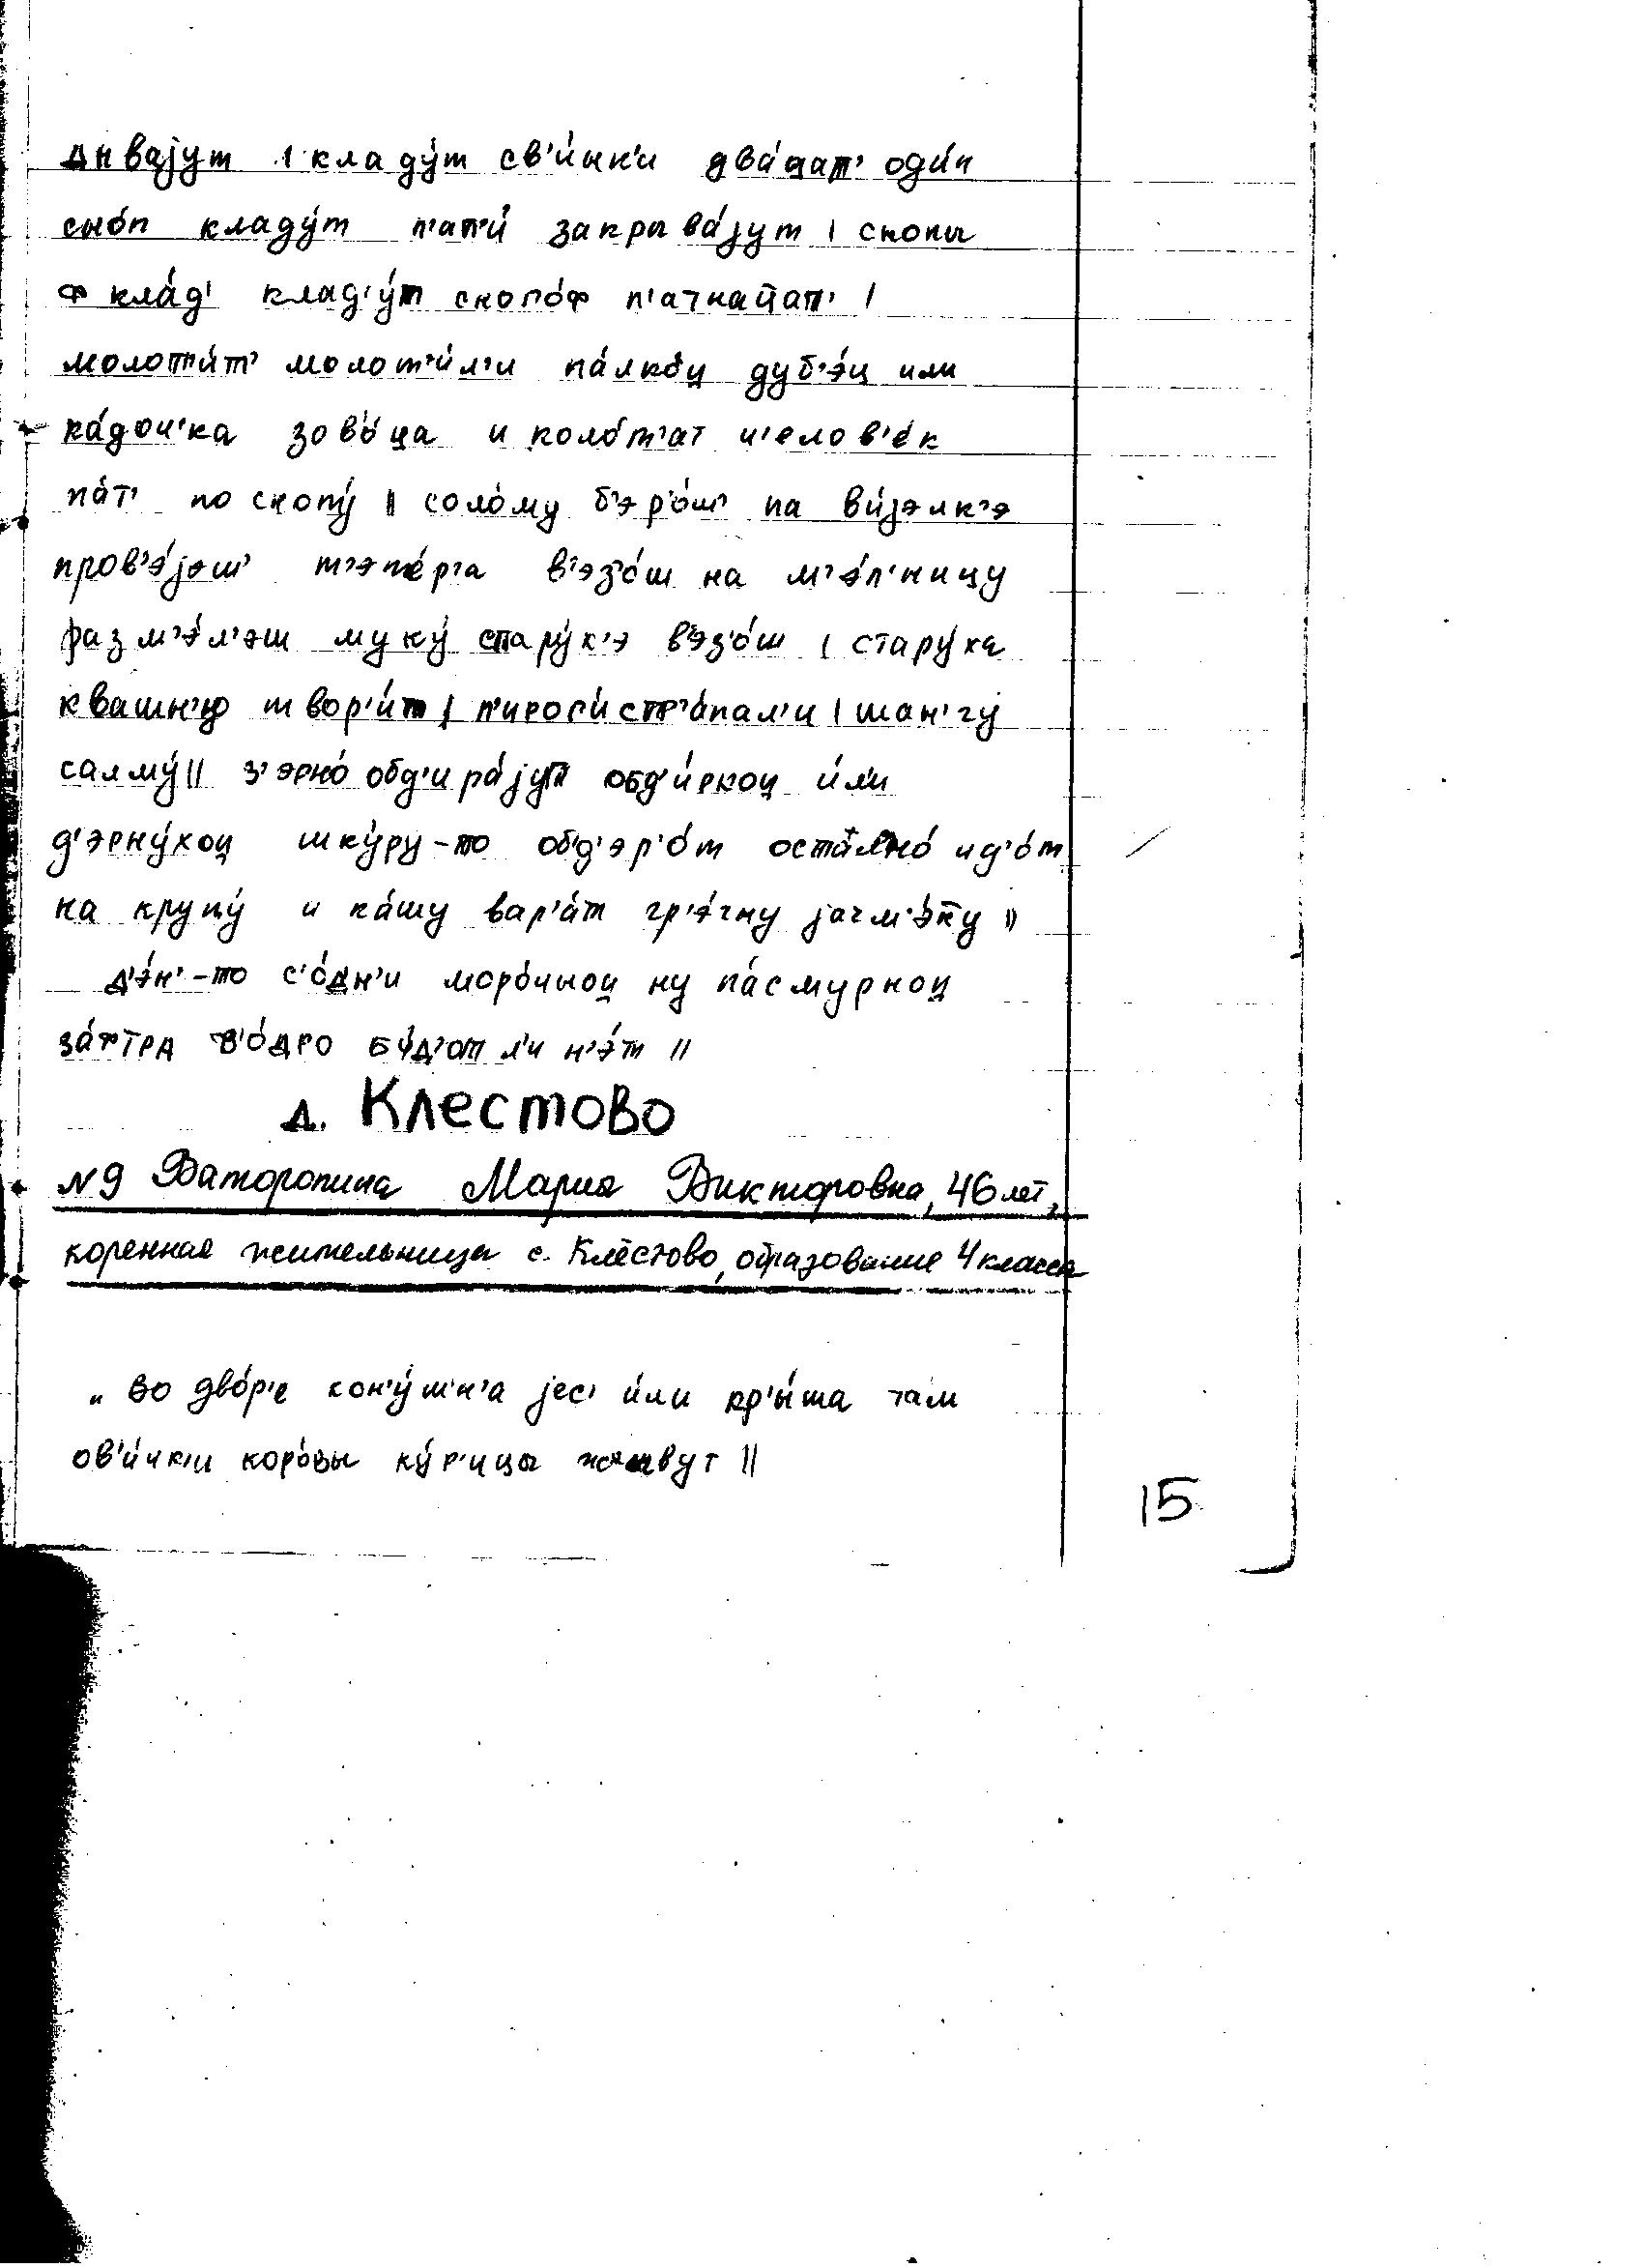 дывајут | кладу́т св'и́нк'и два́цат' оди́н
сно́п кладу́т п'ат'и́ закрыва́јут | снопы
ф кла́д' клад'у́т снопо́ф п'атнацат' |
молот'и́т' молот'и́л'и па́лкоц дуб'э́ц или
ка́доч'ка зово́ца и коло́т'ат ч'елов'е́к
па́т' по снопу́ || соло́му б'эр'о́ш' на ви́јэлк'э
пров'э́јэш' т'эпе́р'а в'эз'о́ш на м'э́л'ницу
разм'э́л'эш муку́ стару́х'э в'эз'о́ш | стару́ха
квашн'у твор'и́т | п'ироги́ стр'а́пал'и | шан'гу
салму́ || з'эрно́ обд'ира́јут обд'и́ркоц и́л'и
д'эрну́хоц шку́ру-то об'д'эр'о́т оста́лно́ ид'о́т
на крупу́ и ка́шу вар'а́т гр'э́чну јачм'э́ну ||
д'э́н'-то с'о́дн'и моро́чноц ну па́смурноц
за́фтра в'о́дро бу́д'от л'и н'э́т ||
д. Клестово
№9 Ваторопина Мария Викторовна, 46 лет,
коренная жительница с. Клёстово, образование 4 класса
„ во дво́р'е кон'у́шн'а јес' и́ли кр'ы́ша там
ов'и́чк'и коро́вы ку́р'ицы живут ||
15